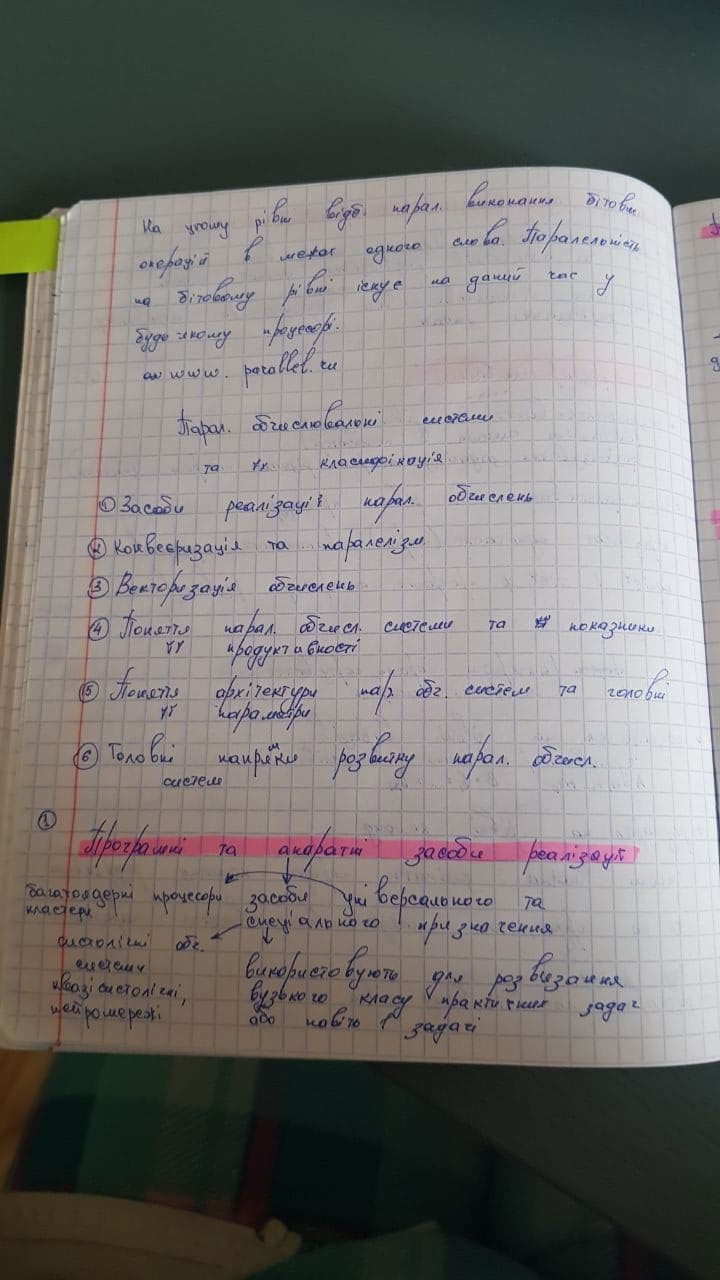 На цьому рівні відб. парал. виконання бітових
операцій в межах одного слова. Паралельність
на бітовому рівні існує на даний час у
будь якому процесорі.
www. parallel.ru
Парал. обчислювальні системи
та їх класифікація
① Засоби реалізації парал. обчислень
② Конвеєризація та паралелізм
③ Векторизація обчислень
④ Поняття парал. обчисл. системи та показники
її продуктивності
⑤ Поняття архітектури пар. обч. систем та головні
її параметри
⑥ Головні напрями розвитку парал. обчисл.
систем
①
Програмні та апаратні засоби реалізації
багатоядерні процесори засоби універсального та
кластери спеціального призначення
систолічні обч.
системи використовують для розвязання
квазісистолічні, вузького класу практичних задач
нейромережі або навіть 1 задачі